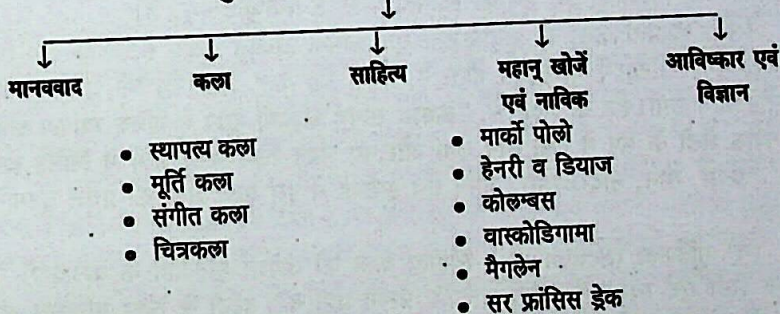 मानववाद
कला
साहित्य
महान् खोजें
एवं नाविक
आविष्कार एवं
विज्ञान
• स्थापत्य कला
• मूर्ति कला
• संगीत कला
• चित्रकला
• मार्को पोलो
• हेनरी व डियाज
• कोलम्बस
• वास्कोडिगामा
• मैगलेन
• सर फ्रांसिस ड्रेक